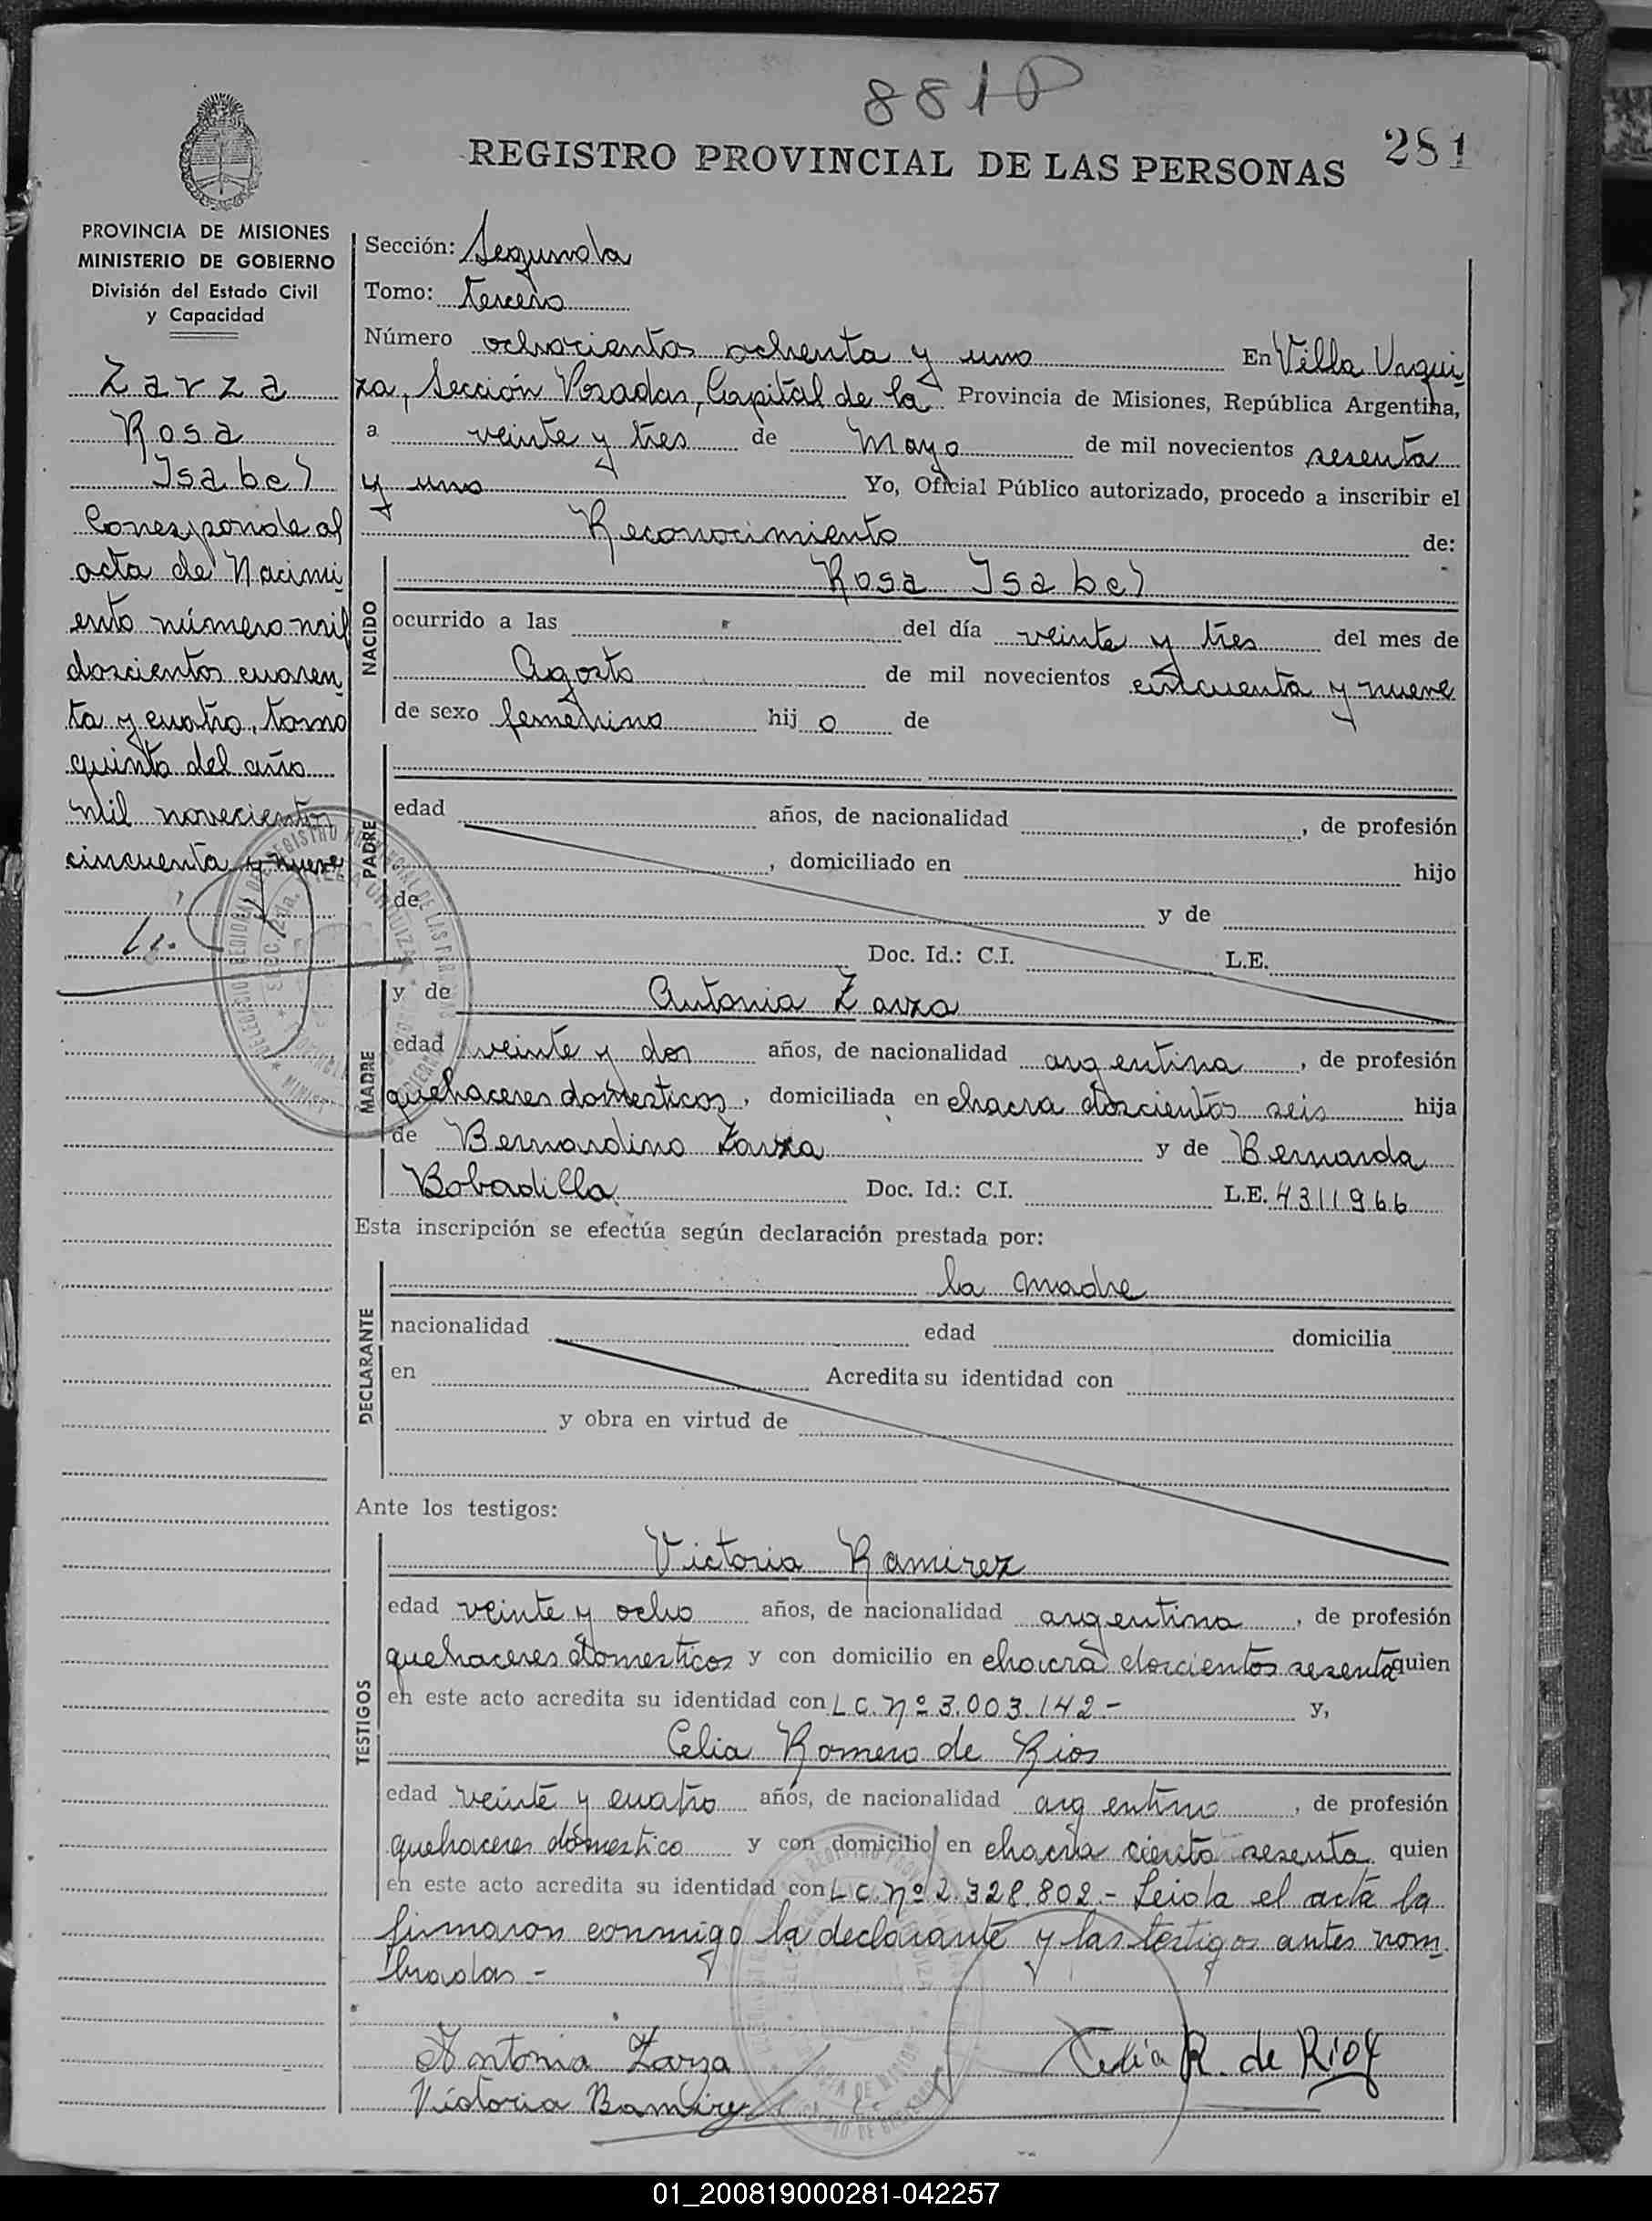 881 P
281
REGISTRO PROVINCIAL DE LAS PERSONAS
PROVINCIA DE MISIONES
MINISTERIO DE GOBIERNO
División del Estado Civil
y Capacidad
Zarza
Rosa
Isabel
Corresponde al
acta de Nacimi
ento número mil
doscientos cuaren
ta y cuatro, tomo
quinto del año
mil novecientos
cincuenta y nueve
Sección: Segunda
Tomo: tercero
Número ochocientos ochenta y uno En Villa Urqui
za, Sección Posadas, Capital de la Provincia de Misiones, República Argentina,
a veinte y tres de Mayo de mil novecientos sesenta
y uno Yo, Oficial Público autorizado, procedo a inscribir el
Reconocimiento de:
NACIDO
Rosa Isabel
ocurrido a las del día veinte y tres del mes de
Agosto de mil novecientos cincuenta y nueve
de sexo femenino hijo de
PADRE
edad años, de nacionalidad , de profesión
, domiciliado en hijo
de y de
Doc. Id.: C.I. L.E.
MADRE
y de Antonia Zarza
edad veinte y dos años, de nacionalidad argentina , de profesión
quehaceres domesticos, domiciliada en chacra doscientos seis hija
de Bernardino Zarza y de Bernarda
Bobadilla Doc. Id.: C.I. L.E. 4311966
Esta inscripción se efectúa según declaración prestada por:
DECLARANTE
la madre
nacionalidad edad domicilia
en Acredita su identidad con
y obra en virtud de
Ante los testigos:
TESTIGOS
Victoria Ramirez
edad veinte y ocho años, de nacionalidad argentina , de profesión
quehaceres domesticos y con domicilio en chacra doscientos sesenta quien
en este acto acredita su identidad con L C. Nº 3.003.142.- y,
Celia Romero de Rios
edad veinte y cuatro años, de nacionalidad argentina , de profesión
quehaceres domestico y con domicilio en chacra ciento sesenta quien
en este acto acredita su identidad con L C. Nº 2.328.802.- Leida el acta la
firmaron conmigo la declarante y las testigos antes nom
bradas.-
Antonia Zarza
Celia R. de Rios
Victoria Ramirez
01_200819000281-042257